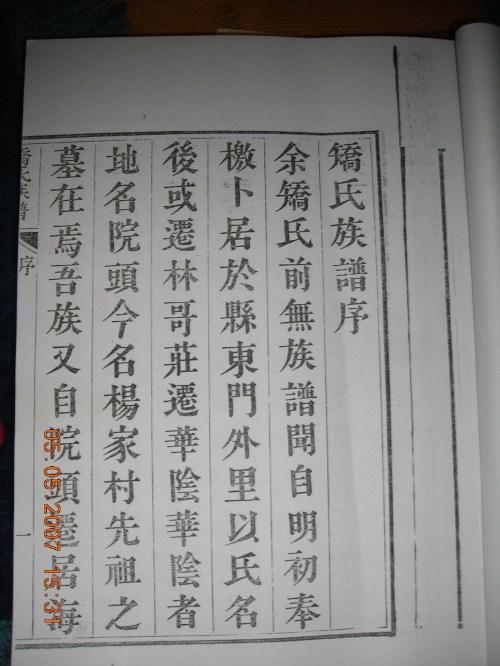 矯氏族譜序
余矯氏前無族譜聞自明初奉
檄卜居於縣東門外里以氏名
後或遷林哥莊遷華陰華陰者
地名院頭今名楊家村先祖之
墓在焉吾族又自院頭遷居海
矯氏族譜
序
一
05.05.2007 15:31